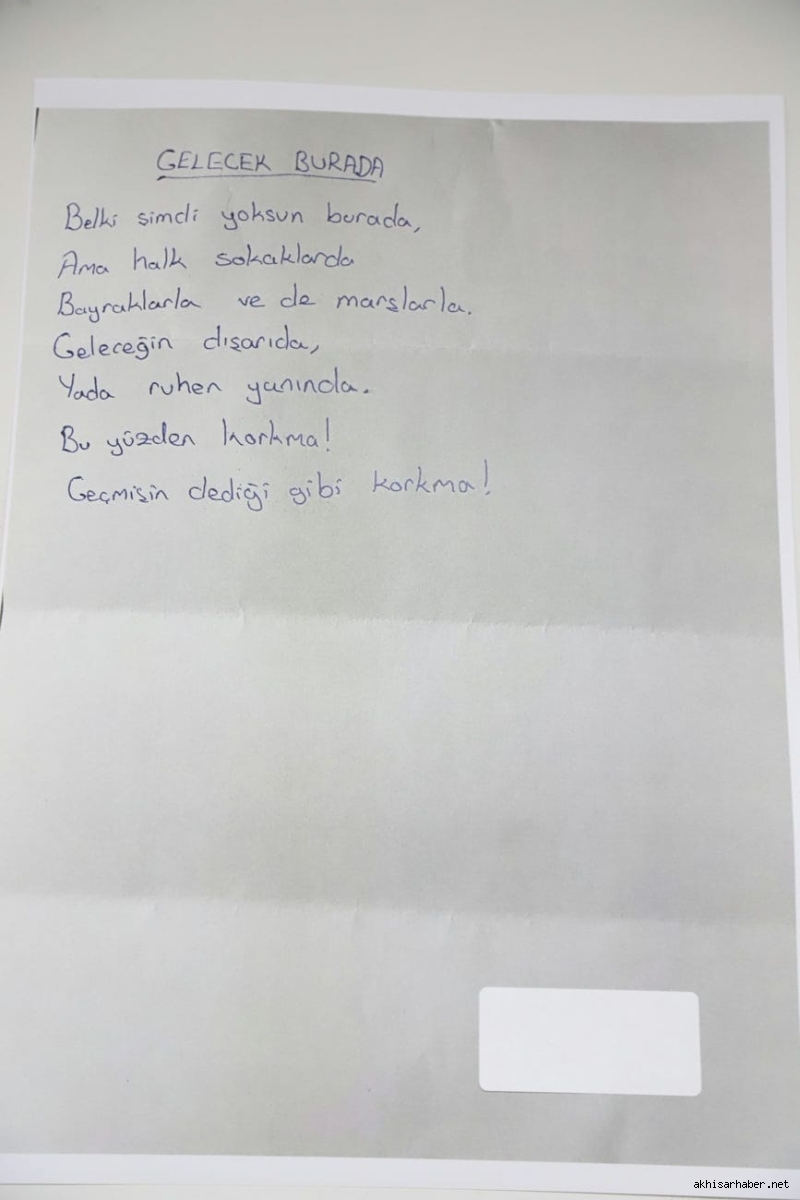 GELECEK BURADA
Belki şimdi yoksun burada,
Ama halk sokaklarda
Bayraklarla ve de marşlarla.
Geleceğin dışarıda,
Yada ruhen yanında.
Bu yüzden korkma!
Geçmişin dediği gibi korkma!
akhisarhaber.net